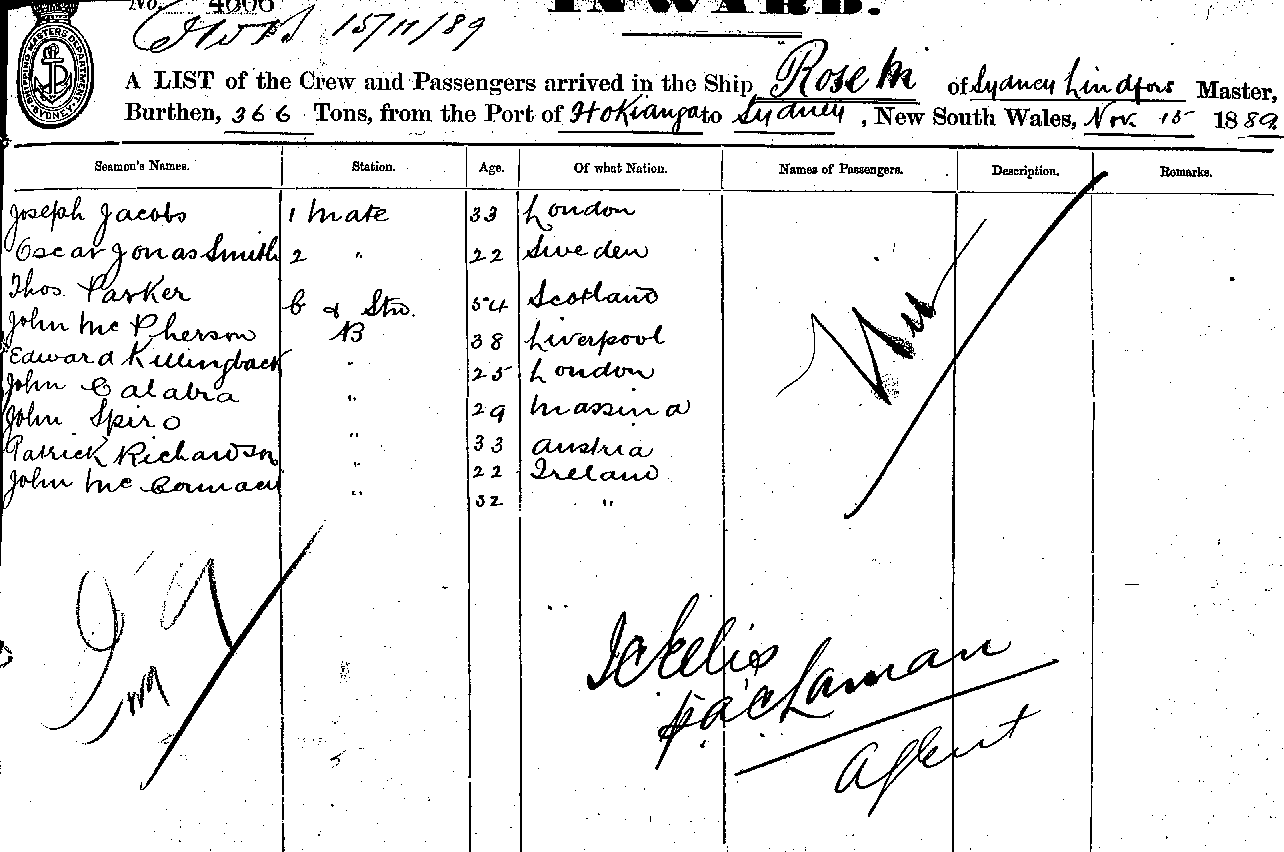 No. 4606 INWARD.
15/11/89
A LIST of the Crew and Passengers arrived in the Ship Rose M of Sydney Lindfors Master,
Burthen, 366 Tons, from the Port of Hokianga to Sydney, New South Wales, Nov. 15 1889
Seamen's Names. Station. Age. Of what Nation. Names of Passengers. Description. Remarks.
Joseph Jacobs 1 Mate 33 London
Oscar Jonas Smith 2 " 22 Sweden
Thos. Parker C & Stw. 54 Scotland
John McPherson AB 38 Liverpool
Edward Killingback " 25 London
John Calabra " 29 Massina
John Spiro " 33 Austria
Patrick Richardson " 22 Ireland
John McCormack " 32 "
Nil
Agent